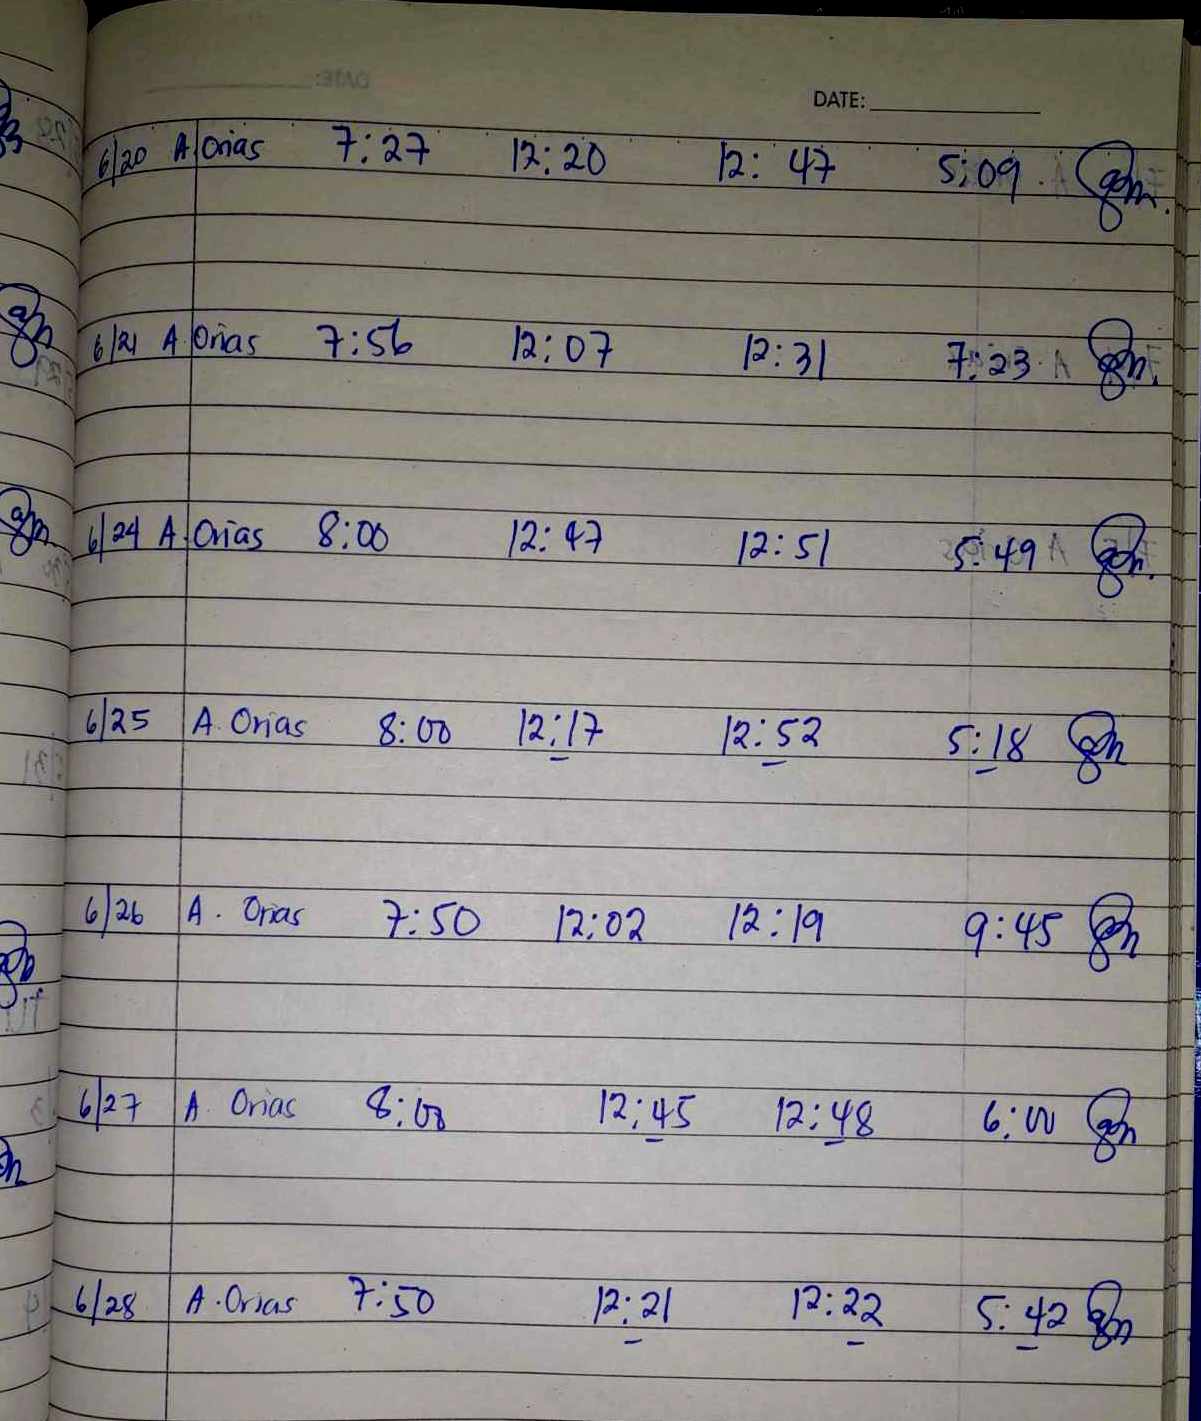 DATE:
6/20 A Orias 7:27 12:20 12:47 5:09
6/21 A. Orias 7:56 12:07 12:31 7:23
6/24 A. Orias 8:00 12:47 12:51 5:49
6/25 A. Orias 8:00 12:17 12:52 5:18
6/26 A. Orias 7:50 12:02 12:19 9:45
6/27 A. Orias 8:00 12:45 12:48 6:00
6/28 A. Orias 7:50 12:21 12:22 5:42